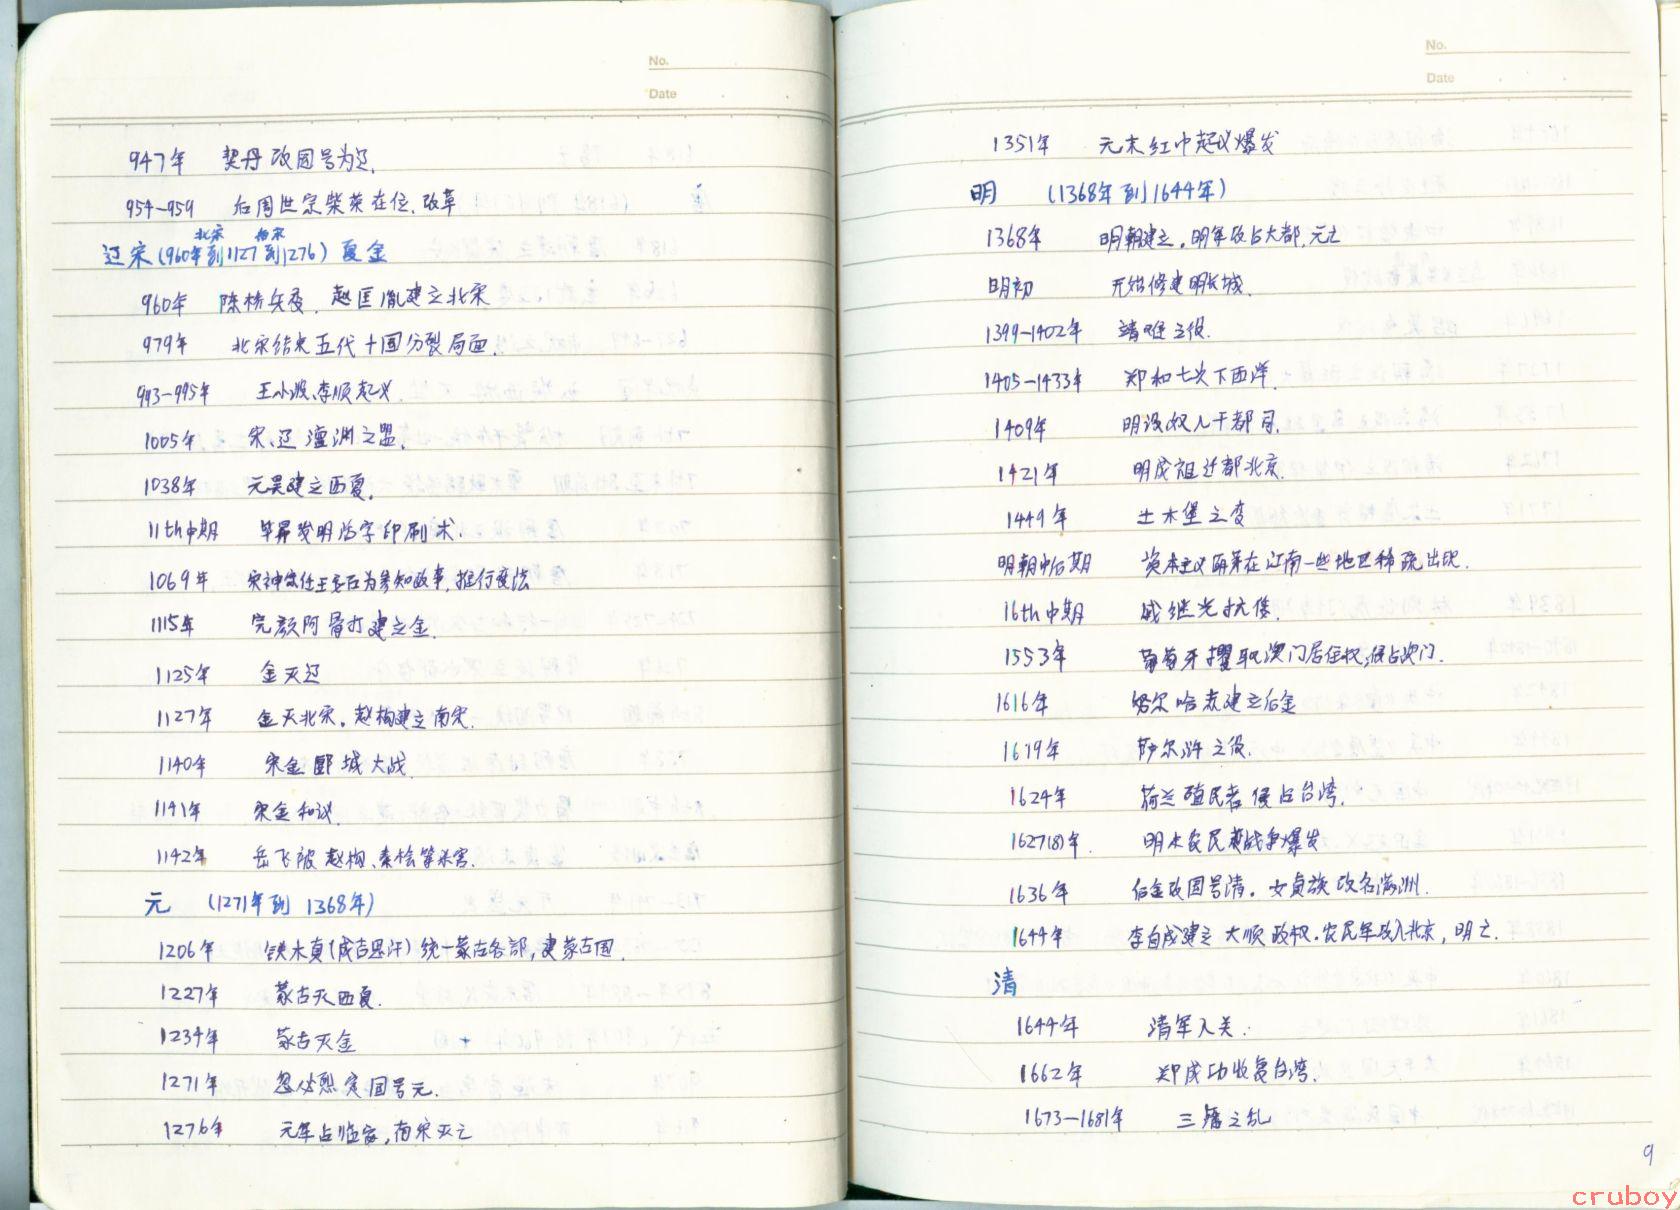 No.
Date
947年 契丹改国号为辽.
954-959 后周世宗柴荣在位.改革
北宋 南宋
辽宋(960年到1127到1276)夏金
960年 陈桥兵变.赵匡胤建立北宋
979年 北宋结束五代十国分裂局面.
993-995年 王小波、李顺起义
1005年 宋、辽澶渊之盟.
1038年 元昊建立西夏.
11th中期 毕昇发明活字印刷术.
1069年 宋神宗任王安石为参知政事,推行变法
1115年 完颜阿骨打建立金.
1125年 金灭辽
1127年 金灭北宋.赵构建立南宋.
1140年 宋金郾城大战
1141年 宋金和议.
1142年 岳飞被赵构、秦桧等杀害.
元 (1271年到1368年)
1206年 铁木真(成吉思汗)统一蒙古各部,建蒙古国.
1227年 蒙古灭西夏.
1234年 蒙古灭金
1271年 忽必烈定国号元.
1276年 元军占临安,南宋灭亡
No.
Date
1351年 元末红巾起义爆发
明 (1368年到1644年)
1368年 明朝建立.明军攻占大都.元亡
明初 开始修建明长城.
1399-1402年 靖难之役.
1405-1433年 郑和七次下西洋.
1409年 明设奴儿干都司.
1421年 明成祖迁都北京.
1449年 土木堡之变
明朝中后期 资本主义萌芽在江南一些地区稀疏出现.
16th中期 戚继光抗倭.
1553年 葡萄牙攫取澳门居住权,侵占澳门.
1616年 努尔哈赤建立后金
1619年 萨尔浒之役.
1624年 荷兰殖民者侵占台湾.
1627(8)年. 明末农民战争爆发
1636年 后金改国号清.女真族改名满洲.
1644年 李自成建立大顺政权.农民军攻入北京,明亡.
清
1644年 清军入关.
1662年 郑成功收复台湾.
1673-1681年 三藩之乱
9
cruboy